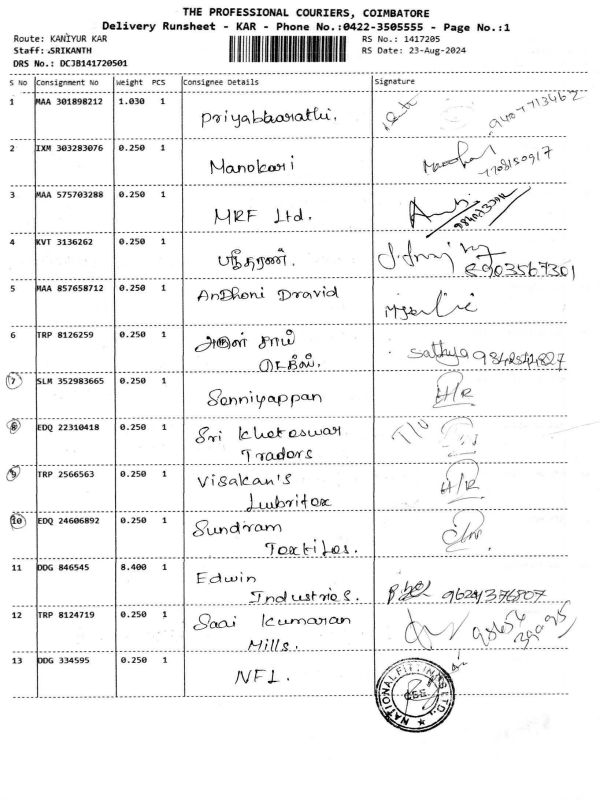 THE PROFESSIONAL COURIERS, COIMBATORE
Delivery Runsheet - KAR - Phone No.:0422-3505555 - Page No.:1
Route: KANIYUR KAR RS No.: 1417205
Staff: .SRIKANTH RS Date: 23-Aug-2024
DRS No.: DCJB141720501
S No Consignment No Weight PCS Consignee Details Signature
1 MAA 301898212 1.030 1 Priyabhaarathi.
2 IXM 303283076 0.250 1 Manokari
7708150917
3 MAA 575703288 0.250 1 MRF Ltd.
4 KVT 3136262 0.250 1 ஸ்ரீதரண்.
8903567301
5 MAA 857658712 0.250 1 AnDhoni Dravid
6 TRP 8126259 0.250 1 அருன் சாய்
Sathya
7 SLM 352983665 0.250 1 Senniyappan H/R
8 EDQ 22310418 0.250 1 Sri Kheteswar
Traders
9 TRP 2566563 0.250 1 Visakan's H/R
Lubritex
10 EDQ 24606892 0.250 1 Sundram
Textiles.
11 DDG 846545 8.400 1 Edwin
Industries.
12 TRP 8124719 0.250 1 Saai Kumaran
Mills.
13 DDG 334595 0.250 1 NFL.
NATIONAL
CBE